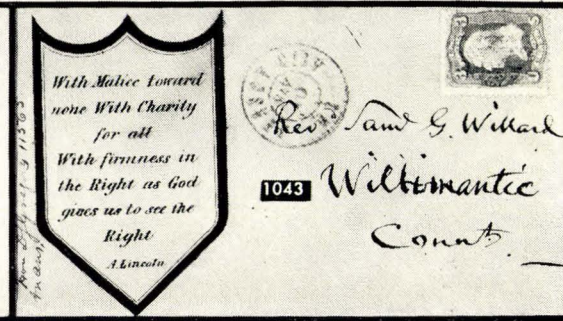 With Malice toward
none With Charity
for all
With firmness in
the Right as God
gives us to see the
Right
A. Lincoln
CITY
3 3
1043
Rev Saml G. Willard
Willimantic
Connt.